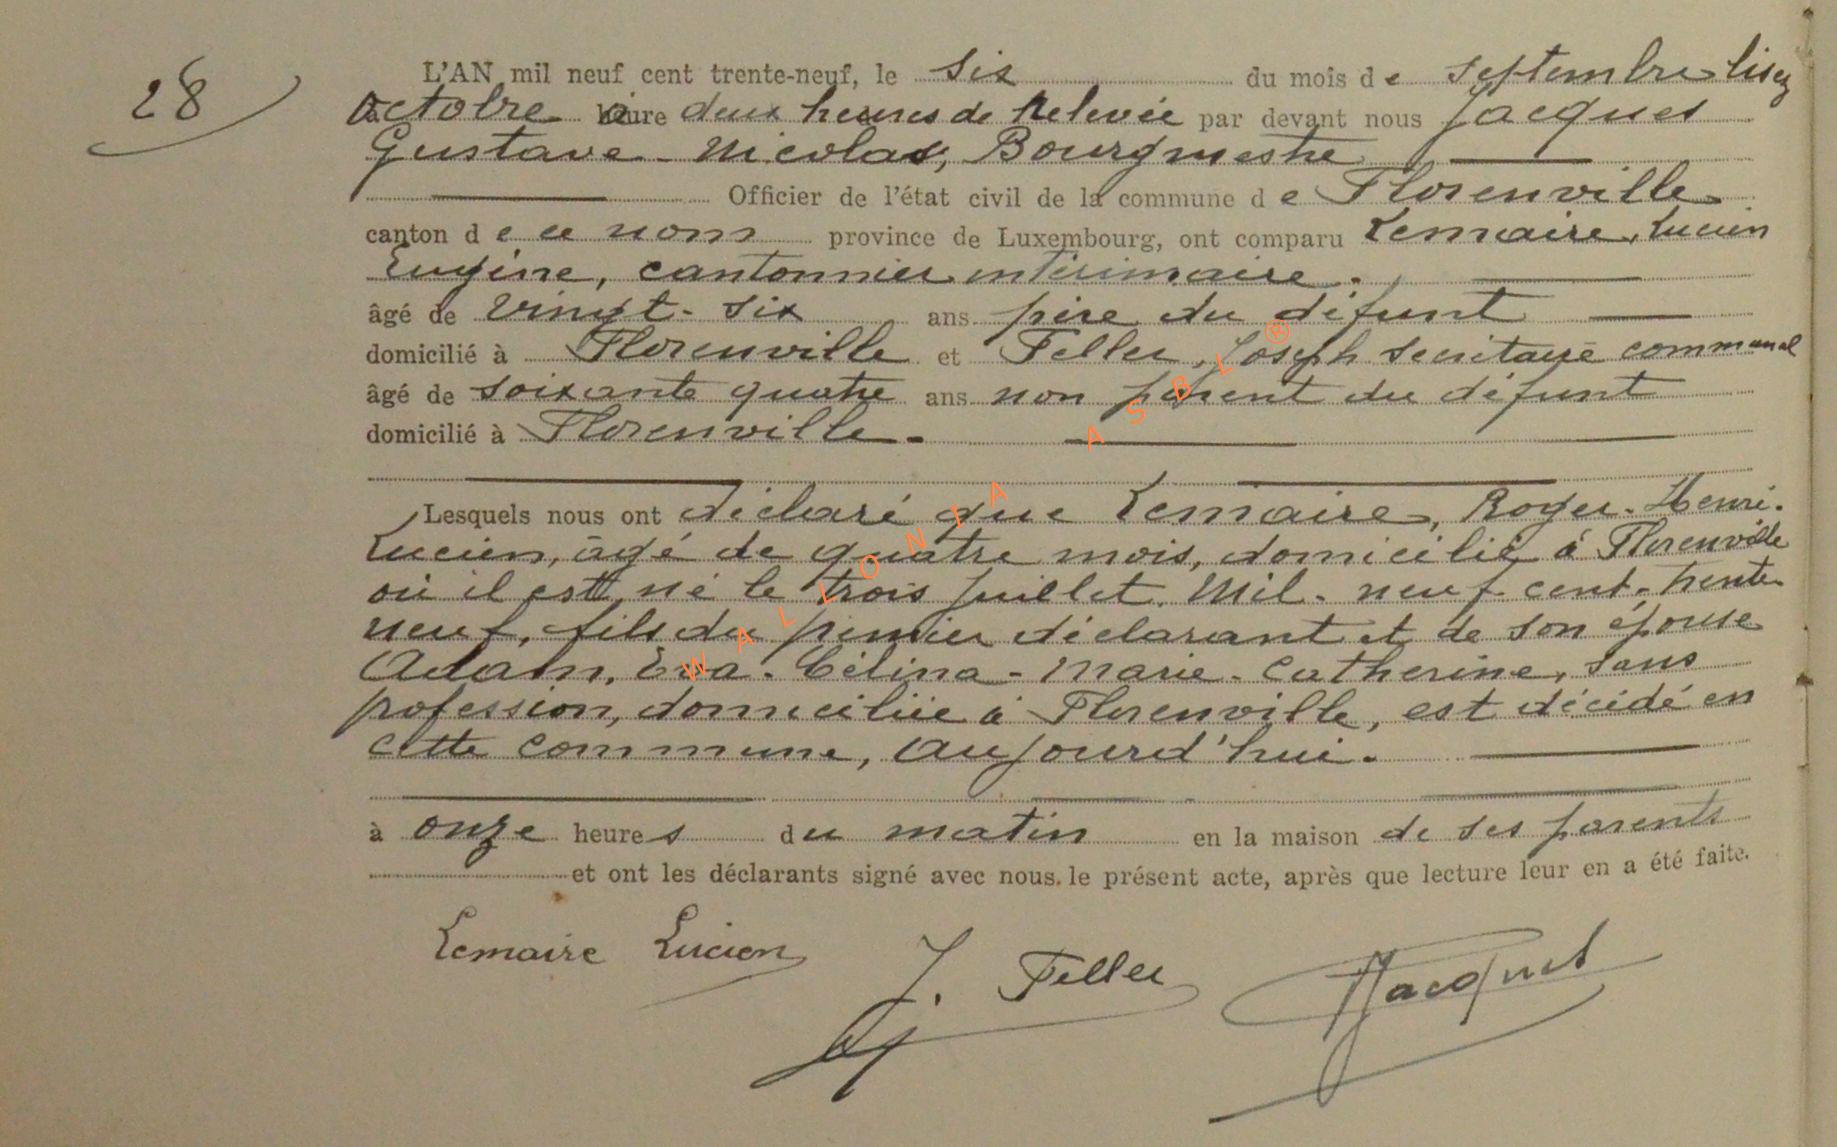 28
L'AN mil neuf cent trente-neuf, le six du mois de septembre lisez
Octobre à heure deux heures de Relevée par devant nous Jacques
Gustave - Nicolas, Bourgmestre
Officier de l'état civil de la commune de Florenville
canton de ce nom province de Luxembourg, ont comparu Lemaire, Lucien
Eugène, cantonnier intérimaire.
âgé de vingt-six ans père du défunt
domicilié à Florenville et Feller, Joseph secrétaire communal
âgé de soixante quatre ans non parent du défunt
domicilié à Florenville.
Lesquels nous ont déclaré que Lemaire, Roger-Henri-
Lucien, âgé de quatre mois, domicilié à Florenville
où il est né le trois juillet Mil-neuf cent-trente
neuf, fils du premier déclarant et de son épouse
Adam, Eva-Célina-Marie-Catherine, sans
profession, domiciliée à Florenville, est décédé en
cette commune, aujourd'hui.
à onze heures du matin en la maison de ses parents
et ont les déclarants signé avec nous le présent acte, après que lecture leur en a été faite.
Lemaire Lucien J. Feller Jacques
WALLONIA ASBL®